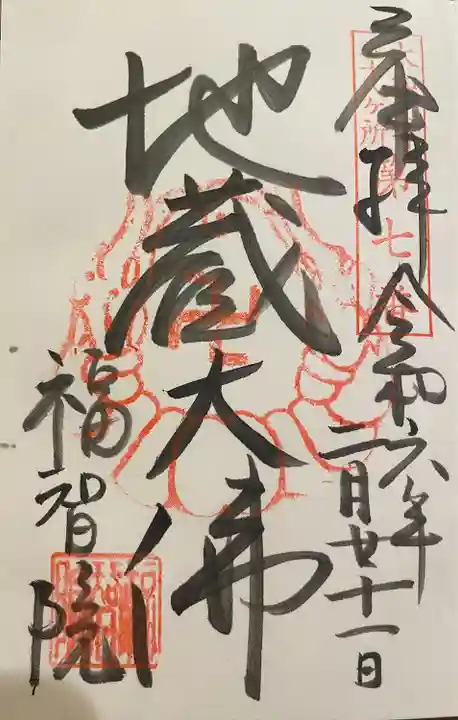 奉拝
ヶ所第七
令和六年
二月廿十一日
地蔵大佛
福智院